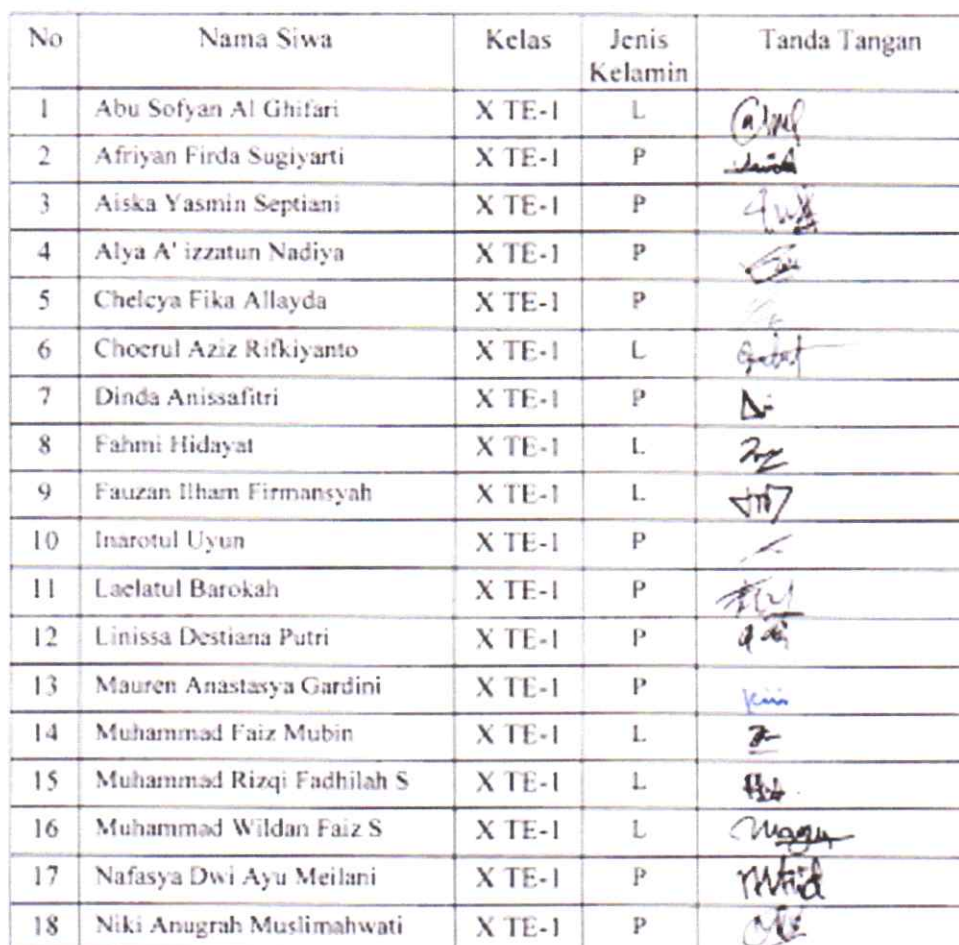 No Nama Siwa Kelas Jenis Kelamin Tanda Tangan
1 Abu Sofyan Al Ghifari X TE-1 L
2 Afriyan Firda Sugiyarti X TE-1 P
3 Aiska Yasmin Septiani X TE-1 P
4 Alya A' izzatun Nadiya X TE-1 P
5 Chelcya Fika Allayda X TE-1 P
6 Choerul Aziz Rifkiyanto X TE-1 L
7 Dinda Anissafitri X TE-1 P
8 Fahmi Hidayat X TE-1 L
9 Fauzan Ilham Firmansyah X TE-1 L
10 Inarotul Uyun X TE-1 P
11 Laelatul Barokah X TE-1 P
12 Linissa Destiana Putri X TE-1 P
13 Mauren Anastasya Gardini X TE-1 P
14 Muhammad Faiz Mubin X TE-1 L
15 Muhammad Rizqi Fadhilah S X TE-1 L
16 Muhammad Wildan Faiz S X TE-1 L
17 Nafasya Dwi Ayu Meilani X TE-1 P
18 Niki Anugrah Muslimahwati X TE-1 P